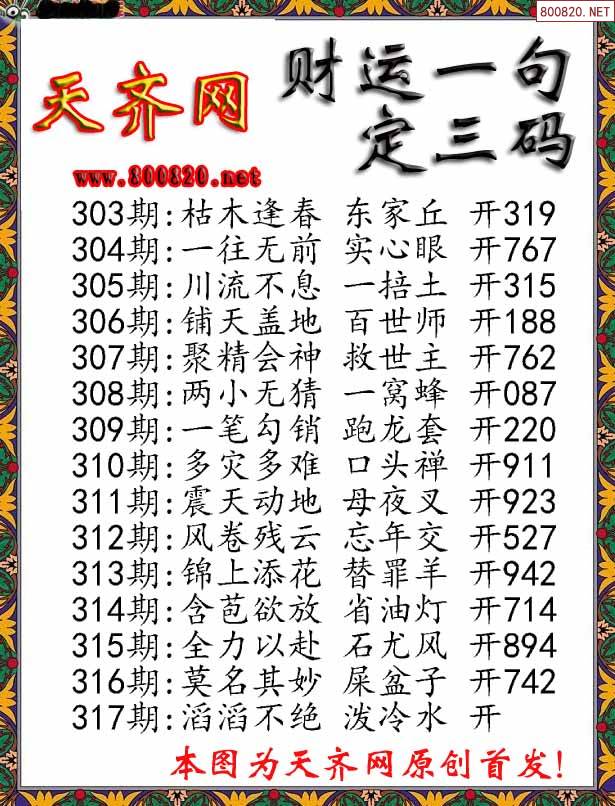 800820.NET
财运一句
天齐网
定三码
www.800820.net
303期:枯木逢春 东家丘 开319
304期:一往无前 实心眼 开767
305期:川流不息 一掊土 开315
306期:铺天盖地 百世师 开188
307期:聚精会神 救世主 开762
308期:两小无猜 一窝蜂 开087
309期:一笔勾销 跑龙套 开220
310期:多灾多难 口头禅 开911
311期:震天动地 母夜叉 开923
312期:风卷残云 忘年交 开527
313期:锦上添花 替罪羊 开942
314期:含苞欲放 省油灯 开714
315期:全力以赴 石尤风 开894
316期:莫名其妙 屎盆子 开742
317期:滔滔不绝 泼冷水 开
本图为天齐网原创首发!